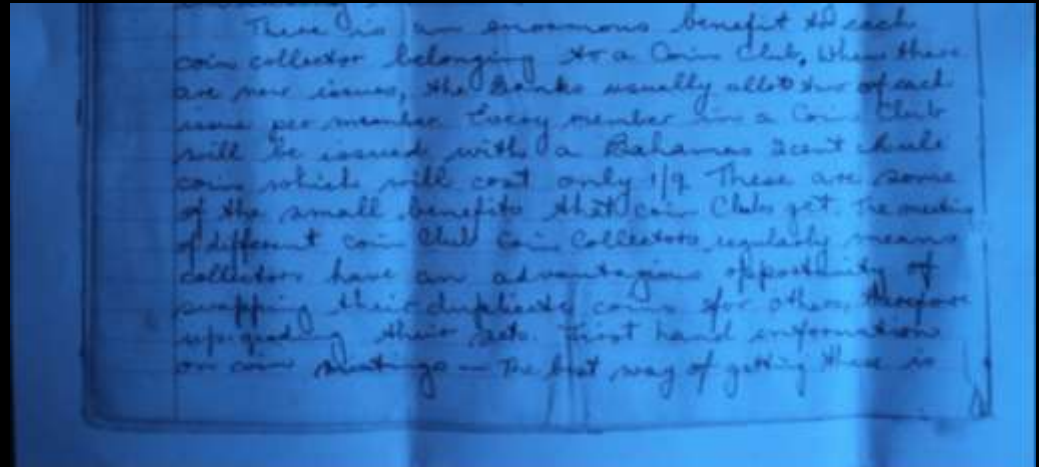 There is an enormous benefit to each
coin collector belonging to a Coin Club, When there
are new issues, the Banks usually allot two of each
issue per member. Every member in a Coin Club
will be issued with a Bahamas 2cent
coin which will cost only 1/9 These are some
of the small benefits that coin Clubs get. The
of different coin Club Coin Collectors regularly means
collectors have an advantagious opportunity of
swapping their duplicate coins for others, therefore
up-grading their sets. First hand information
on coin mintings — The best way of getting these is